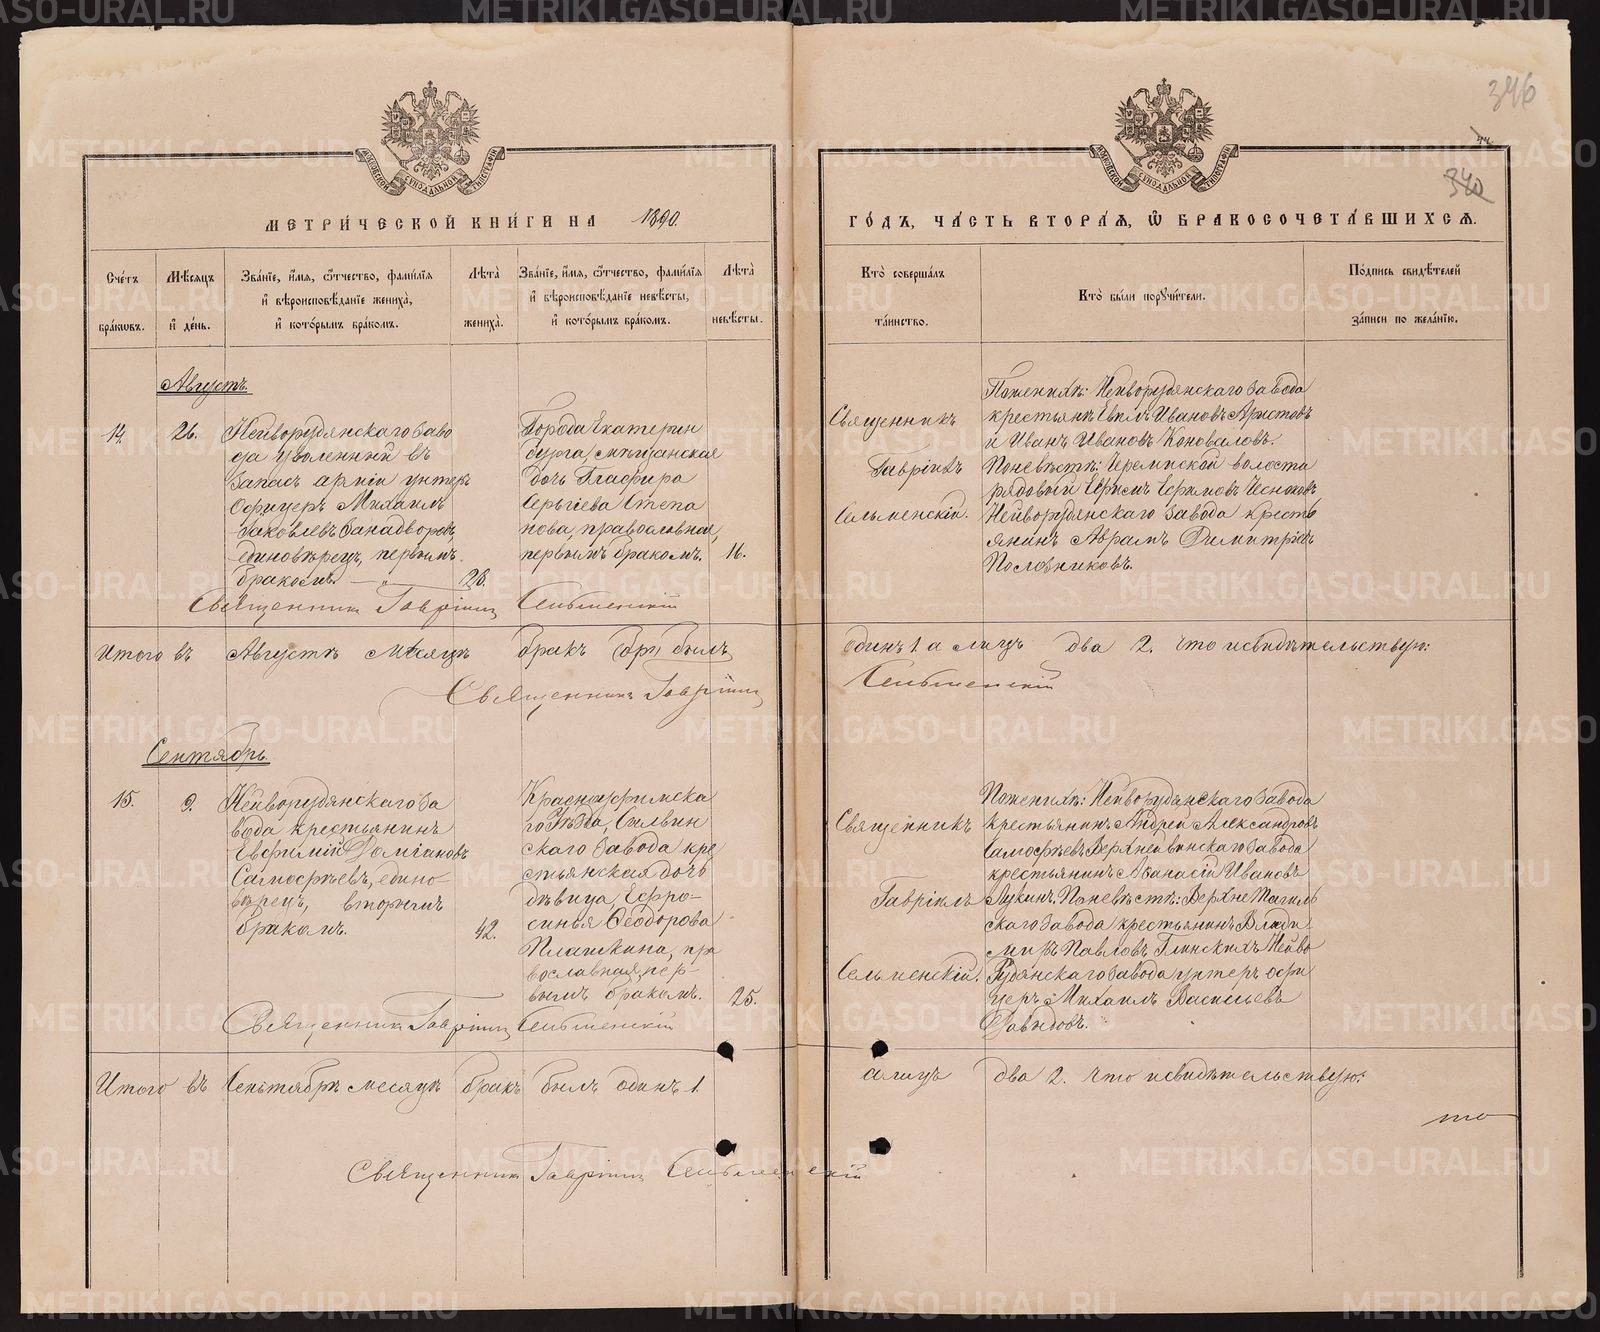 346
340
МЕТРИ́ЧЕСКОЙ КНИ́ГИ НА 1890.
ГО́ДЪ, ЧА́СТЬ ВТОРА́Я, Ѡ҆ БРАКОСОЧЕТА́ВШИХСЯ.
Сче́тъ бра́кѡвъ.
Мѣ́сяцъ и҆ де́нь.
Зва́нїе, и҆́мя, ѻ҆́тчество, фамѝлїя
и҆ вѣроисповѣ́данїе жениха̀,
и҆ кото́рымъ бра́комъ.
Лѣ́та жениха̀.
Зва́нїе, и҆́мя, ѻ҆́тчество, фами́лїя
и҆ вѣроисповѣ́данїе невѣ́сты,
и҆ кото́рымъ бра́комъ.
Лѣ́та невѣ́сты.
Кто̀ соверша́лъ
та́инство.
Кто̀ бы́ли порꙋчи́тели.
По́дпись свидѣ́телей
за́писи по жела́нїю.
Августъ.
14.
26.
Нейворудянскаго заво
да уволенный въ
запасъ арміи унтеръ
Офицеръ Михаилъ
Іаковлевъ Занадворовъ,
единовѣрецъ, первымъ
бракомъ. — „ —
28.
Города Екатерин
бурга, мѣщанская
дочь Глафира
Сергіева Степа
нова, православная,
первымъ бракомъ.
16.
Священникъ
Гавріилъ
Сельменскій.
По женихѣ: Нейворудянскаго завода
крестьянѣ Евѳимъ Ивановъ Аристовъ
и Иванъ Ивановъ Коноваловъ.
По невѣстѣ: Череминской волости
рядовый Ефимъ Ефимовъ Чесноковъ,
Нейворудянскаго завода кресть
янинъ Аврамъ Димитріевъ
Половниковъ.
Священникъ Гавріилъ Сельменскій
Итого въ Августѣ мѣсяцѣ бракъ былъ
одинъ 1. а лицъ два 2. Что и свидѣтельствую:
Священникъ Гавріилъ Сельменскій
Сентябрь.
15.
9.
Нейворудянскаго за
вода крестьянинъ
Евѳимій Доміановъ
Самосреѣвъ, едино-
вѣрецъ, вторымъ
бракомъ.
42.
Красноуфимска
го Уѣзда, Сылвин
скаго завода кре
стьянская дочь
дѣвица, Ефро-
синья Ѳеодорова
Плашкина, пра
вославная, пер-
вымъ бракомъ.
25.
Священникъ
Гавріилъ
Сельменскій.
По женихѣ: Нейворудянскаго завода
крестьянинъ Андрей Александровъ
Верхнейвинскаго завода
крестьянинъ Аѳанасій Ивановъ
Лукинъ. По невѣстѣ: ВерхнеТагиль
скаго завода крестьянинъ Влади
миръ Павловъ Глинскихъ Нейво
Рудянскаго завода унтеръ офи
церъ Михаилъ Васильевъ
Давыдовъ.
Священникъ Гавріилъ Сельменскій
Итого въ Сентябрѣ месяцѣ бракъ былъ одинъ 1.
а лицъ два 2. Что и свидѣтельствую:
Священникъ Гавріилъ Сельменскій
METRIKI.GASO-URAL.RU